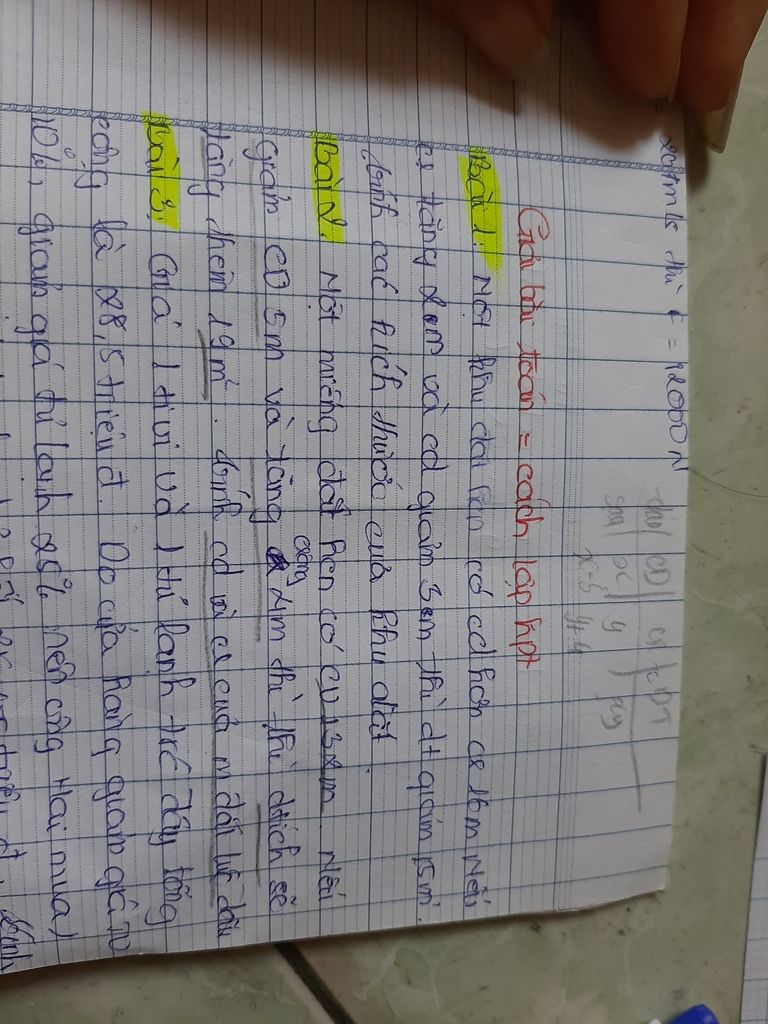 = 204m/s thì t = 12000 N
CD CR
x y xy
x-5 y+4
Giải bài toán = cách lập hpt
Bài 1. Một khu đất hcn có cd hơn cr 16m Nếu
cr tăng 2cm và cd giảm 3cm thì dt giảm 15m².
tính các kích thước của khu đất.
Bài 2. Một miếng đất hcn có cv 132m. Nếu
giảm CD 5m và tăng rộng 4m thì thì dtích sẽ
tăng thêm 19m². tính cd và cr của m đất lúc đầu
Bài 3. Giá 1 ti vi và 1 tủ lạnh trước đây tổng
cộng là 28,5 triệu đ. Do cửa hàng giảm giá TV
10%, giảm giá tủ lạnh 25% nên công Hai mua 1